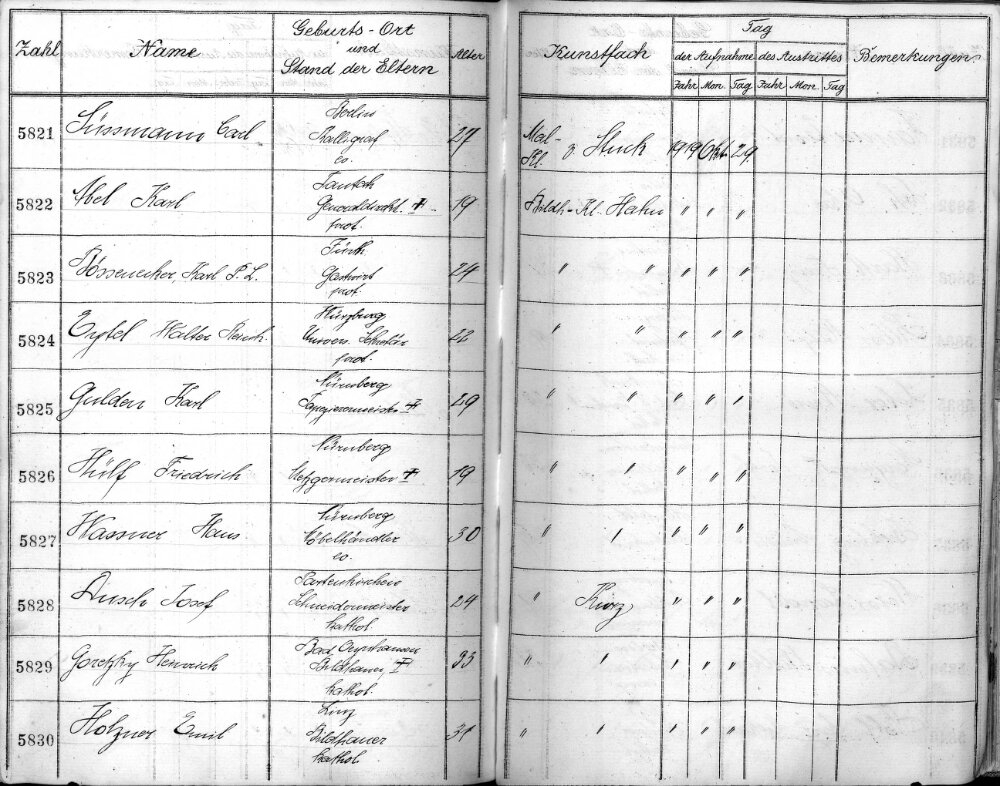 Zahl Name Geburts-Ort und Stand der Eltern Alter Kunstfach Tag der Aufnahme des Austrittes Bemerkungen
Jahr Mon. Tag Jahr Mon. Tag
5821 Süssmann Carl Berlin 27 Mal-Kl. v. Stuck 1919 Okt. 29
ev.
5822 Abel Karl 19 Bildh.-Kl. Hahn " " "
prot.
5823 Bössenecker, Karl P. L. Fürth 24 " " " " "
Gastwirt
prot.
5824 Walter Würzburg 22 " " " " "
Univers. Sekretär
prot.
5825 Gulden Karl Nürnberg 29 " " " " "
Tapezierermeister †
5826 Hülf Friedrich Nürnberg 19 " " " " "
Metzgermeister †
5827 Wassner Hans Nürnberg 30 " " " " "
Möbelhändler
ev.
5828 Dusch Josef Partenkirchen 24 " Kurz " " "
Schneidermeister
kathol.
5829 Goretzky Heinrich Bad Oeynhausen " " " " "
Bildhauer †
kathol.
5830 Holzner Emil Linz 31 " " " " "
Bildhauer
kathol.